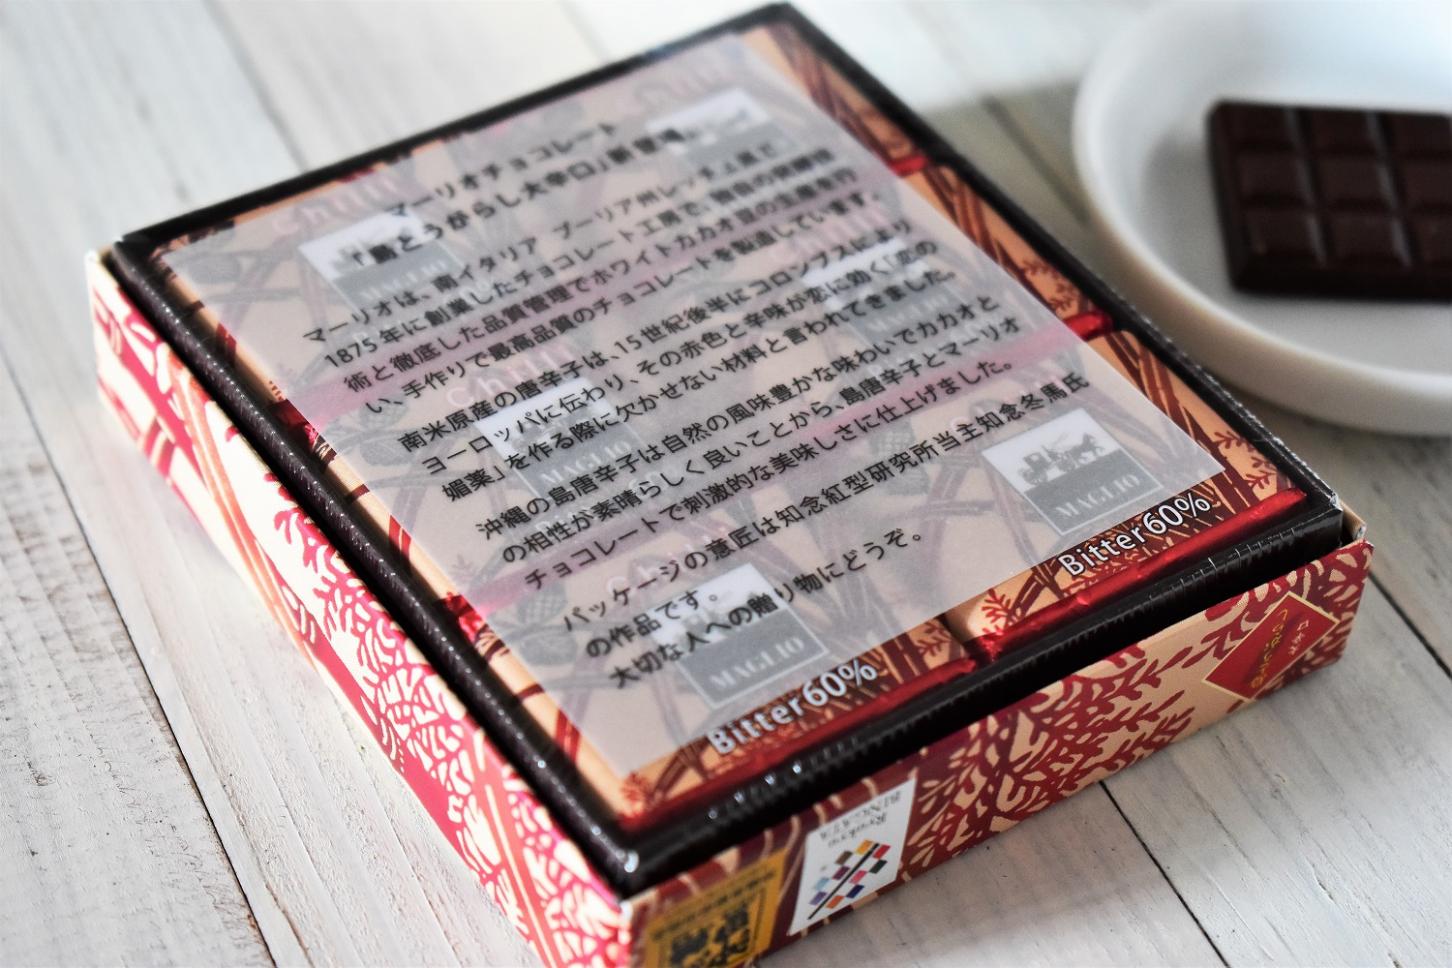 マーリオチョコレート
「島とうがらし大辛口」新登場
マーリオは、南イタリア プーリア州レッチェ県で
1875年に創業したチョコレート工房で、独自の焙煎技
術と徹底した品質管理でホワイトカカオ豆の生産を行
い、手作りで最高品質のチョコレートを製造しています。
南米原産の唐辛子は、15世紀後半にコロンブスにより
ヨーロッパに伝わり、その赤色と辛味が恋に効く「恋の
媚薬」を作る際に欠かせない材料と言われてきました。
沖縄の島唐辛子は自然の風味豊かな味わいでカカオと
の相性が素晴らしく良いことから、島唐辛子とマーリオ
チョコレートで刺激的な美味しさに仕上げました。
パッケージの意匠は知念紅型研究所当主知念冬馬氏
の作品です。
大切な人への贈り物にどうぞ。
Chili
MAGLIO
Chili
MAGLIO
Chili
MAGLIO
Bitter60%
MAGLIO
Bitter60%
Ryukyu
BINGATA